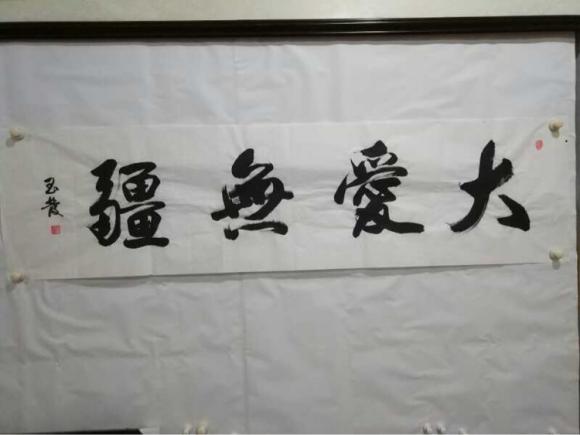 大愛無疆
玉發